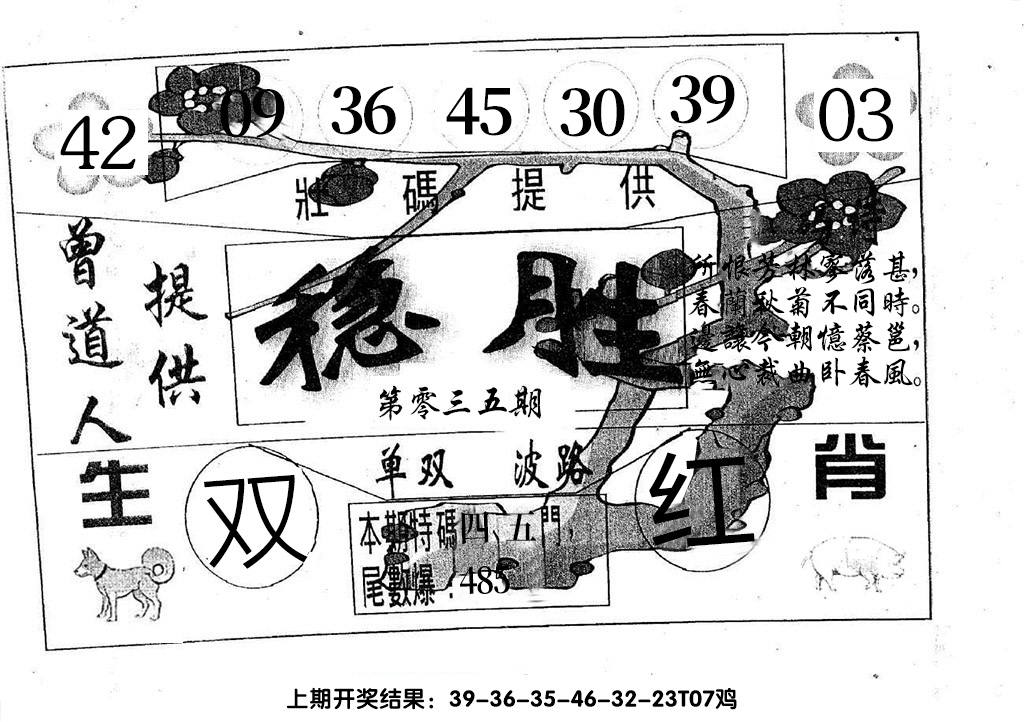 42 09 36 45 30 39 03
壯碼提供
曾道人
提供
稳胜
第零三五期
所恨芳林寥落甚，
春蘭秋菊不同時。
邊讓今朝憶蔡邕，
無心裁曲卧春風。
单双 波路
生肖
双
红
本期特碼四、五門，
尾數爆：485
上期开奖结果：39-36-35-46-32-23T07鸡